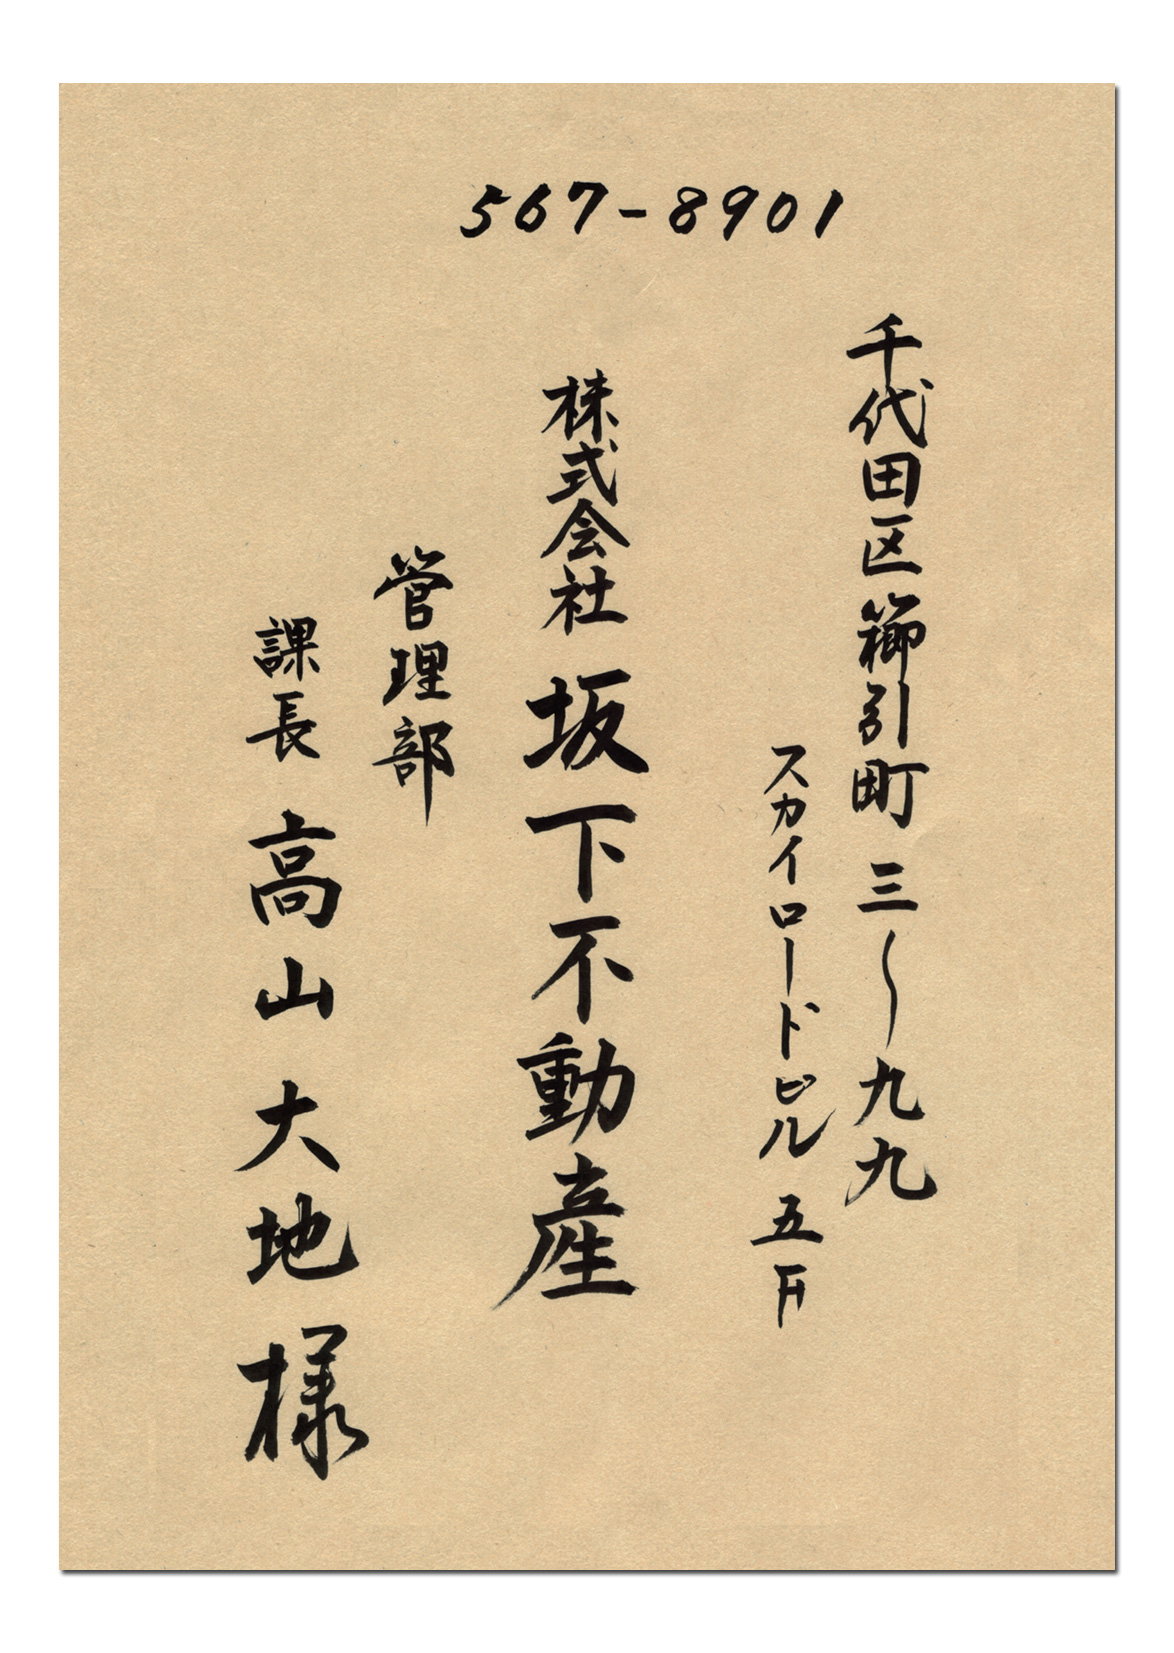 567-8901
千代田区櫛引町 三〜九九
スカイロードビル 五F
株式会社 坂下不動産
管理部
課長 高山 大地 様